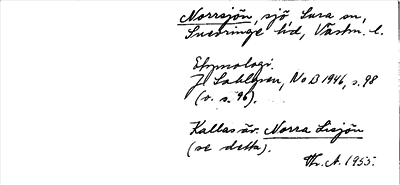 Norrsjön, sjö, Sura sn,
Snevringe hd, Västm. l.
Etymologi.
J. Sahlgren, NoB 1946, s. 98
(o. s. 96).
Kallas äv. Norra Lisjön
(se detta).
Th. A. 1955.